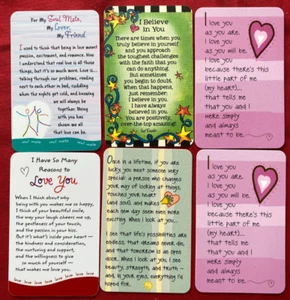 For My Soul Mate,
My Lover,
My Friend
I used to think that being in love meant
passion, excitement, and romance.
I understand that real love is all those
things, but it's so much more. Love is...
talking through our problems, rushing
next to each other in bed, cuddling
when the nights get cold, and knowing
we will always be
together. Being
with you has
shown me all
that love can be.
I Believe
in You
There are times when you
truly believe in yourself
and you approach
the toughest challenges
with the faith that you
can do anything!
But sometimes
you begin to doubt.
When that happens,
just remember:
I believe in you.
I have always
believed in you.
You are positively,
over-the-top amazing!
I love you
as you are.
I love you
as you will be.
I love you
because there's this
little part of me
(my heart)...
that tells me
that you and I
were simply
and always
meant to be.
I Have So Many
Reasons to
Love You
When I think about why
being with you makes me so happy,
I think of your beautiful smile,
the way your laugh cheers me up,
the gentleness of your touch,
and the passion in your kiss.
But it's what's inside your heart —
the kindness and consideration,
the nurturing and support,
and the willingness to give
so much of yourself —
that makes me love you.
love love love love love love love love
Once in a lifetime, if you are
lucky, you meet someone very
special: a person who changes
your way of looking at things,
touches your heart
and soul, and makes
each new day seem even more
exciting. When I look at you...
I see that life's possibilities are
endless, that dreams never die,
and that tomorrow is another
day. When I look at you, I see
beauty, strength, and truth —
and, in your eyes, everything I've
hoped for.
I love you
as you are.
I love you
as you will be.
I love you
because there's this
little part of me
(my heart)...
that tells me
that you and I
were simply
and always
meant to be.